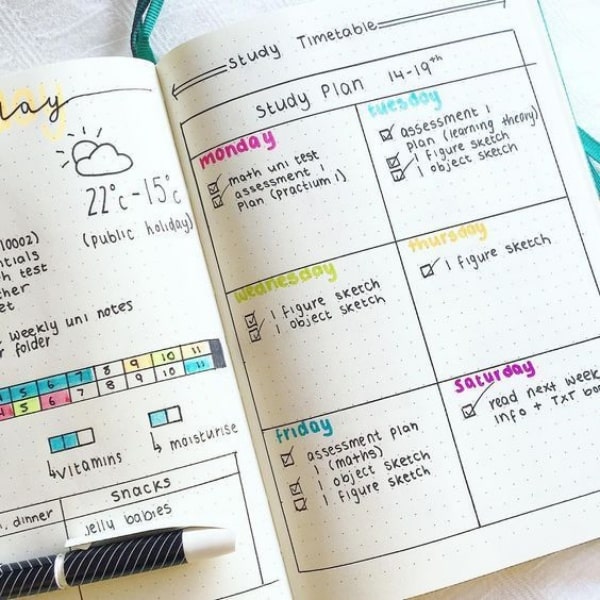 lay
22°c - 15°c
(public holiday)
10002)
ntials
h test
ther
et
weekly uni notes
r folder
4 5 6 7 8 9 10 11
4 5 6 7 8 9 10 11
vitamins
moisturise
snacks
, dinner
jelly babies
study Timetable
study Plan 14-19th
monday
math uni test
assessment 1
plan (practium 1)
tuesday
assessment 1
plan (learning theory)
1 figure sketch
1 object sketch
wednesday
1 figure sketch
1 object sketch
thursday
1 figure sketch
friday
assessment plan
1 (maths)
1 object sketch
1 figure sketch
saturday
read next week
info + TxT bo